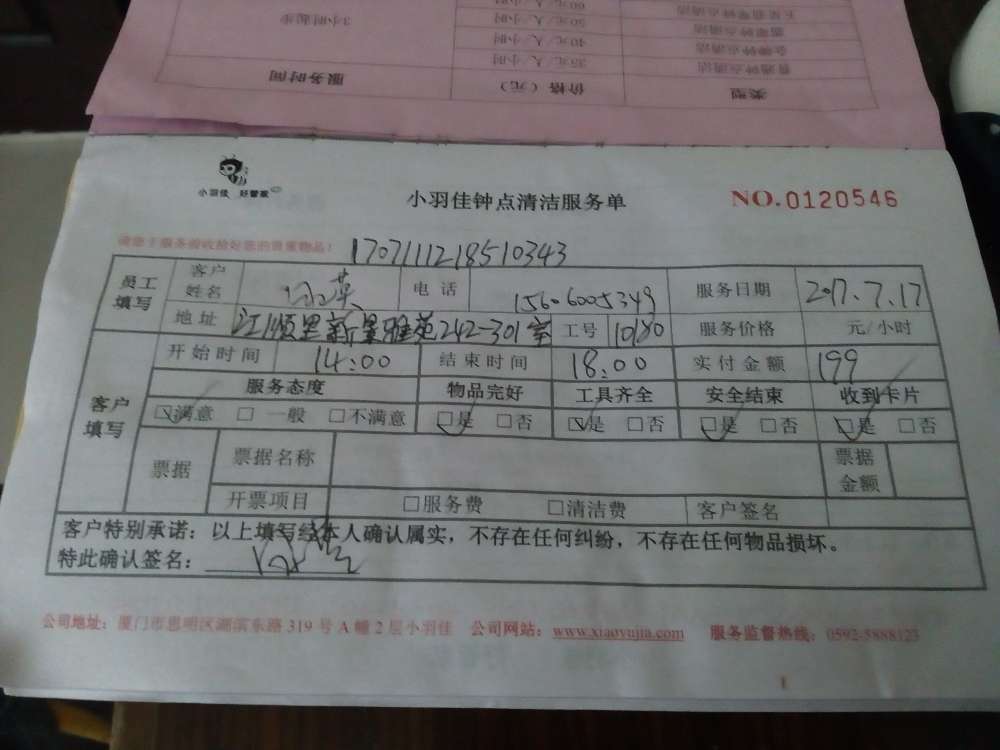 类型 价格（元） 服务时间
普通钟点清洁 35元/人/小时 3小时起步
金牌钟点清洁 40元/人/小时
翡翠钟点清洁 50元/人/小时
60元/人/小时
小羽佳 好管家
小羽佳钟点清洁服务单
NO.0120546
1707111218510343
员工填写 客户姓名 电话 15606005349 服务日期 2017.7.17
地址 江顺里新景雅苑242-301室 工号 10180 服务价格 元/小时
客户填写 开始时间 14:00 结束时间 18:00 实付金额 199
服务态度 物品完好 工具齐全 安全结束 收到卡片
☑满意 □一般 □不满意 ☑是 □否 ☑是 □否 ☑是 □否 ☑是 □否
票据 票据名称 票据金额
开票项目 □服务费 □清洁费 客户签名
客户特别承诺：以上填写经本人确认属实，不存在任何纠纷，不存在任何物品损坏。
特此确认签名：
公司地址：厦门市思明区湖滨东路319号A幢2层小羽佳 公司网站：www.xiaoyujia.com 服务监督热线：0592-5888123